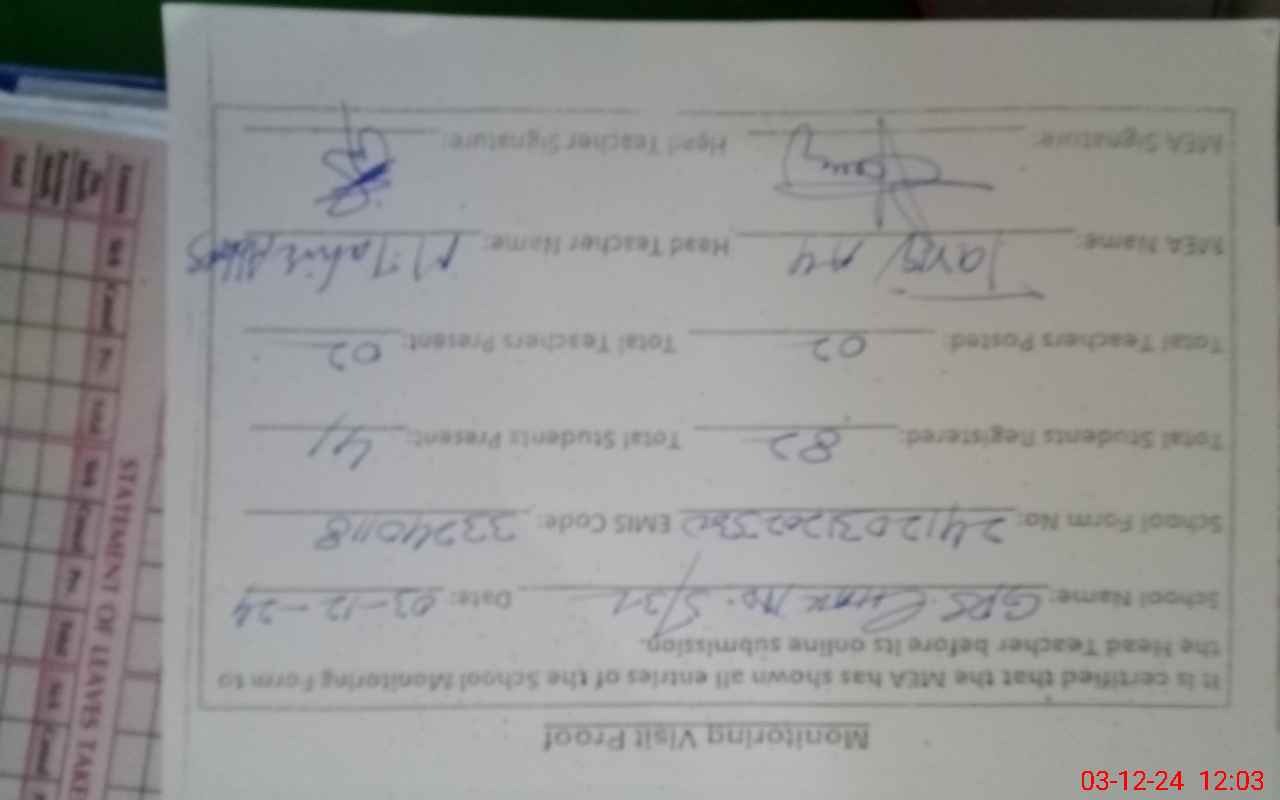 Monitoring Visit Proof
It is certified that the MEA has shown all entries of the School Monitoring Form to
the Head Teacher before its online submission.
School Name: GPS Chak No. 5/32 Date: 03-12-24
School Form No: EMIS Code: 33240118
Total Students Registered: 82 Total Students Present: 41
Total Teachers Posted: 02 Total Teachers Present: 02
MEA Name: Head Teacher Name: M Tahir Abbas
MEA Signature: Head Teacher Signature:
STATEMENT OF LEAVES TAKE
03-12-24 12:03